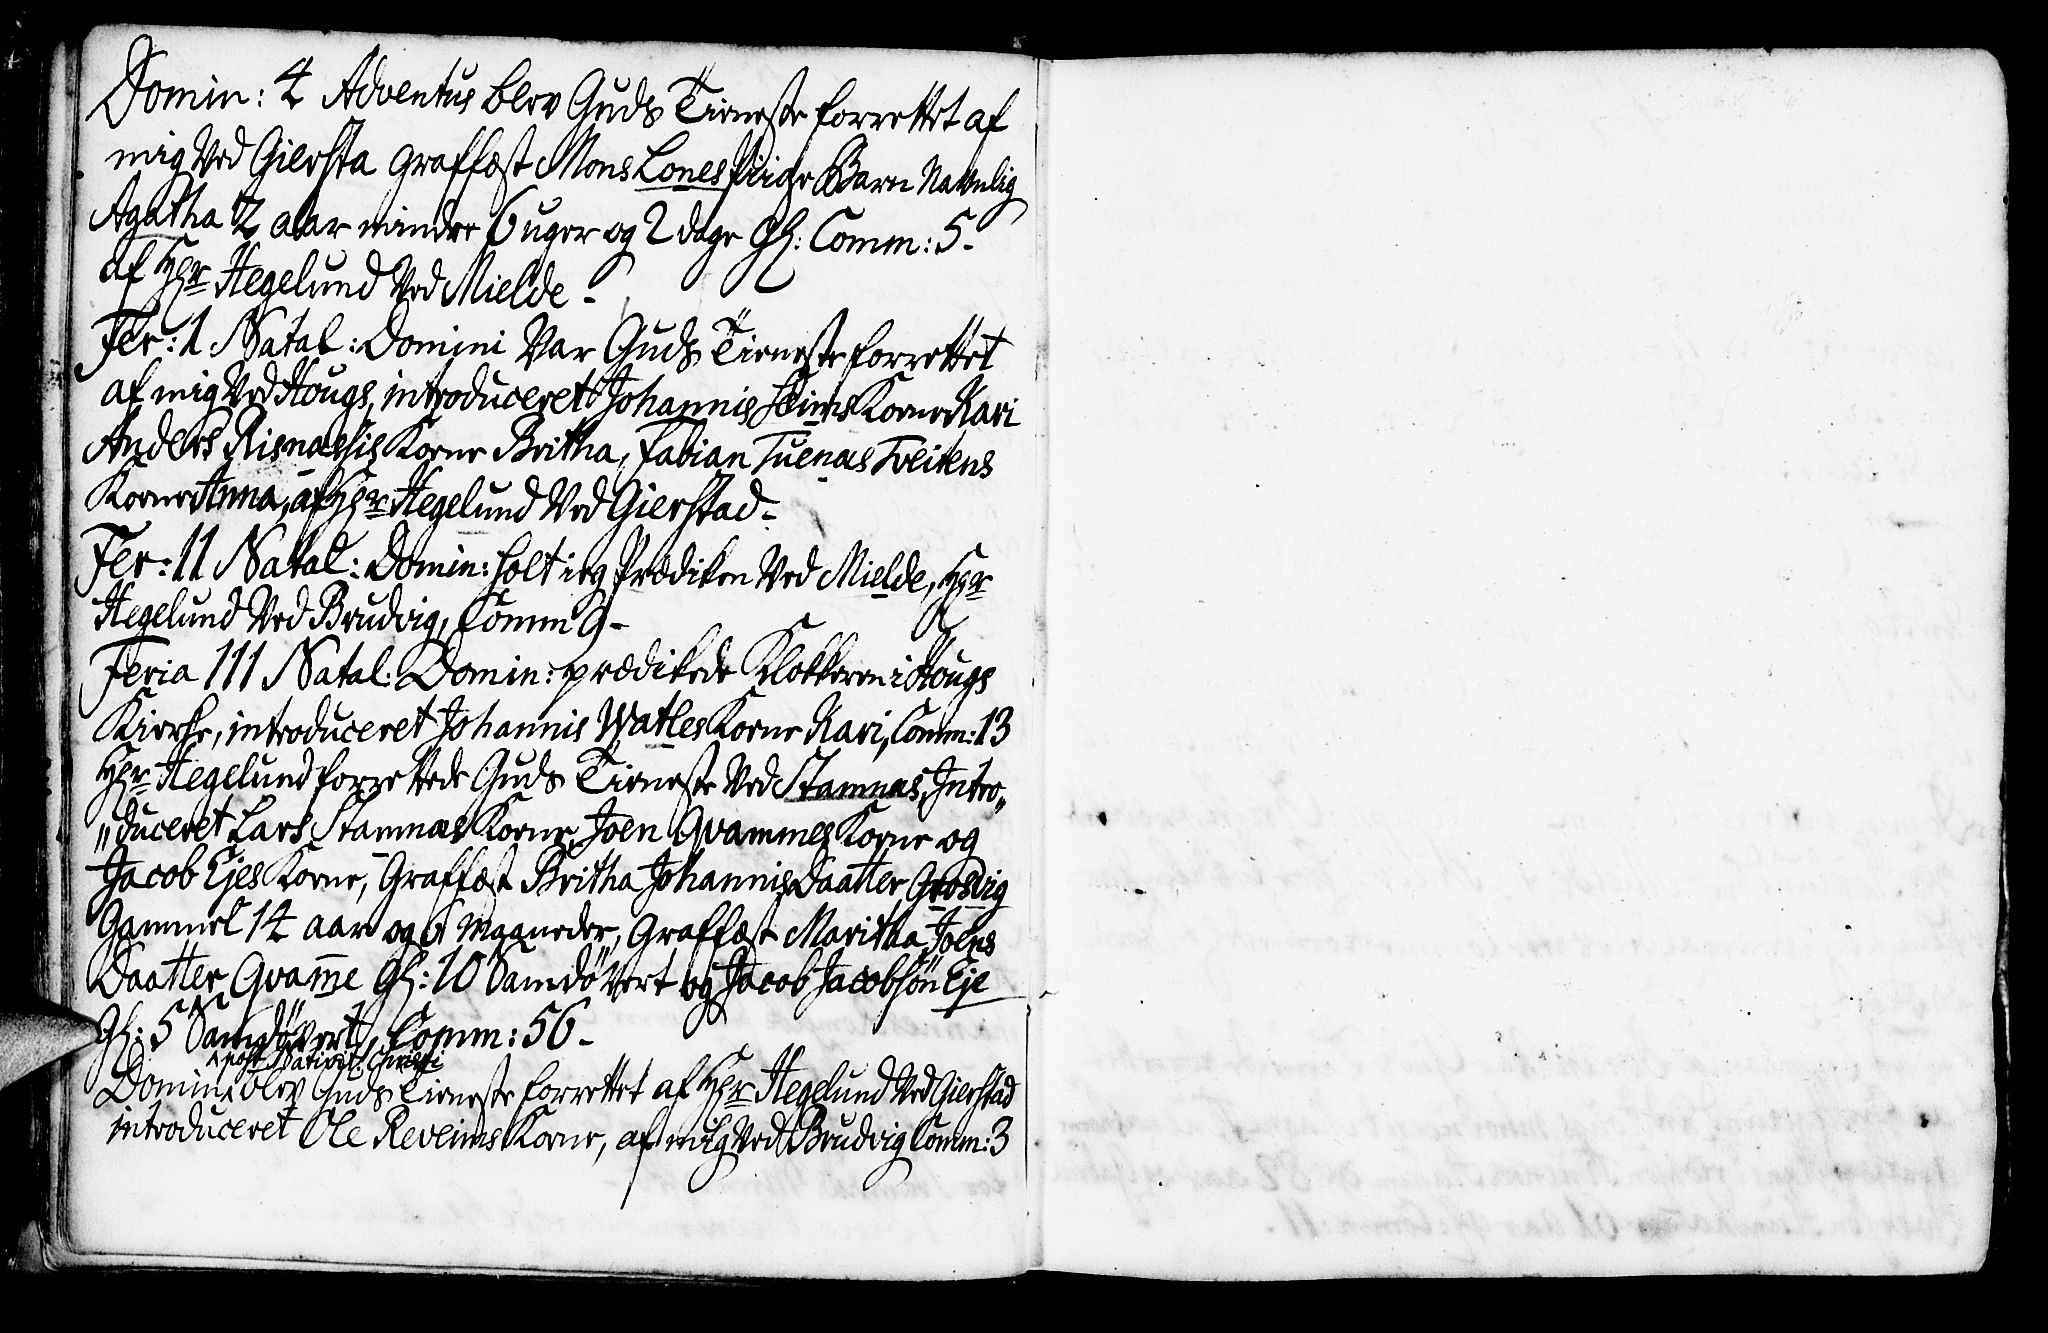 Domin: 4 Adventus blev Guds Tieneste forrettet af
mig ved Giersta graffæst Mons Lones Piige Barn Navnlig
Agatha 2 aar mindre 6 uger og 2 dage Gl: Comm: 5 -
af Hr Hegelund ved Mielde -
Fer: 1 Natal: Domini var Guds Tieneste forrettet
af mig ved Hougs, introduceret Johannis Kone Kari
Anders Risnæssis Kone Britha, Fabian Tuenæs Tveitens
Kone Anna, af Hr Hegelund ved Gierstad -
Fer: 11 Natal: Domin: holt ieg Prædiken ved Mielde, Hr
Hegelund ved Brudvig, Comm 9 -
Feria 111 Natal: Domin: prædikede Klokkeren i Hougs
Kirche, introduceret Johannis Watles Kone Kari, Comm: 13
Hr Hegelund forrettede Guds Tieneste ved Stamnæs, Intro„
„duceret Lars Stamnæs Kone, Joen Qvammes Kone og
Jacob Ejes Kone, Graffæst Britha Johannis Daatter Grosvig
Gammel 14 aar og 6 maaneder, Graffæst Maritha Joens
Daatter Qvam̅e Gl: 10 Samdøvert og Jacob Jacobsøn Eje
Gl: 5 Samdøvert, Comm: 56 -
post Nativit: Christi
Domin: blev Guds Tieneste forrettet af Hr Hegelund ved Gierstad
introduceret Ole Reveims Kone, af mig ved Brudvig Comm: 3